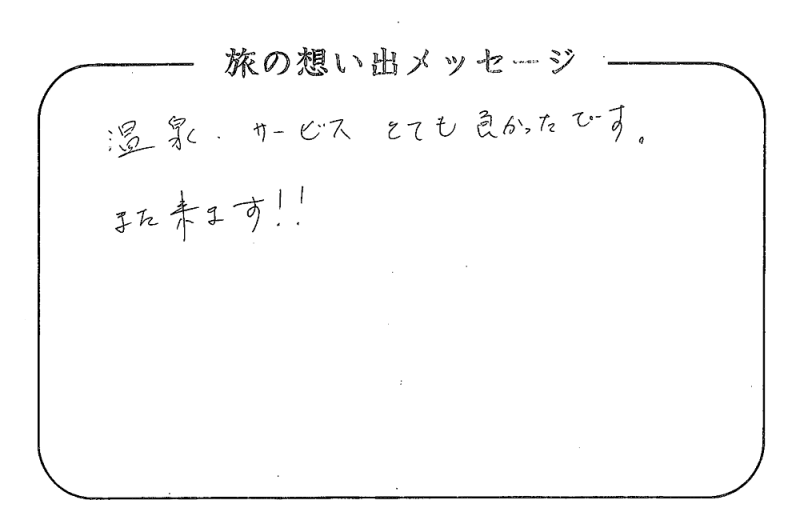 旅の想い出メッセージ
温泉・サービス とても良かったです。
また来ます!!